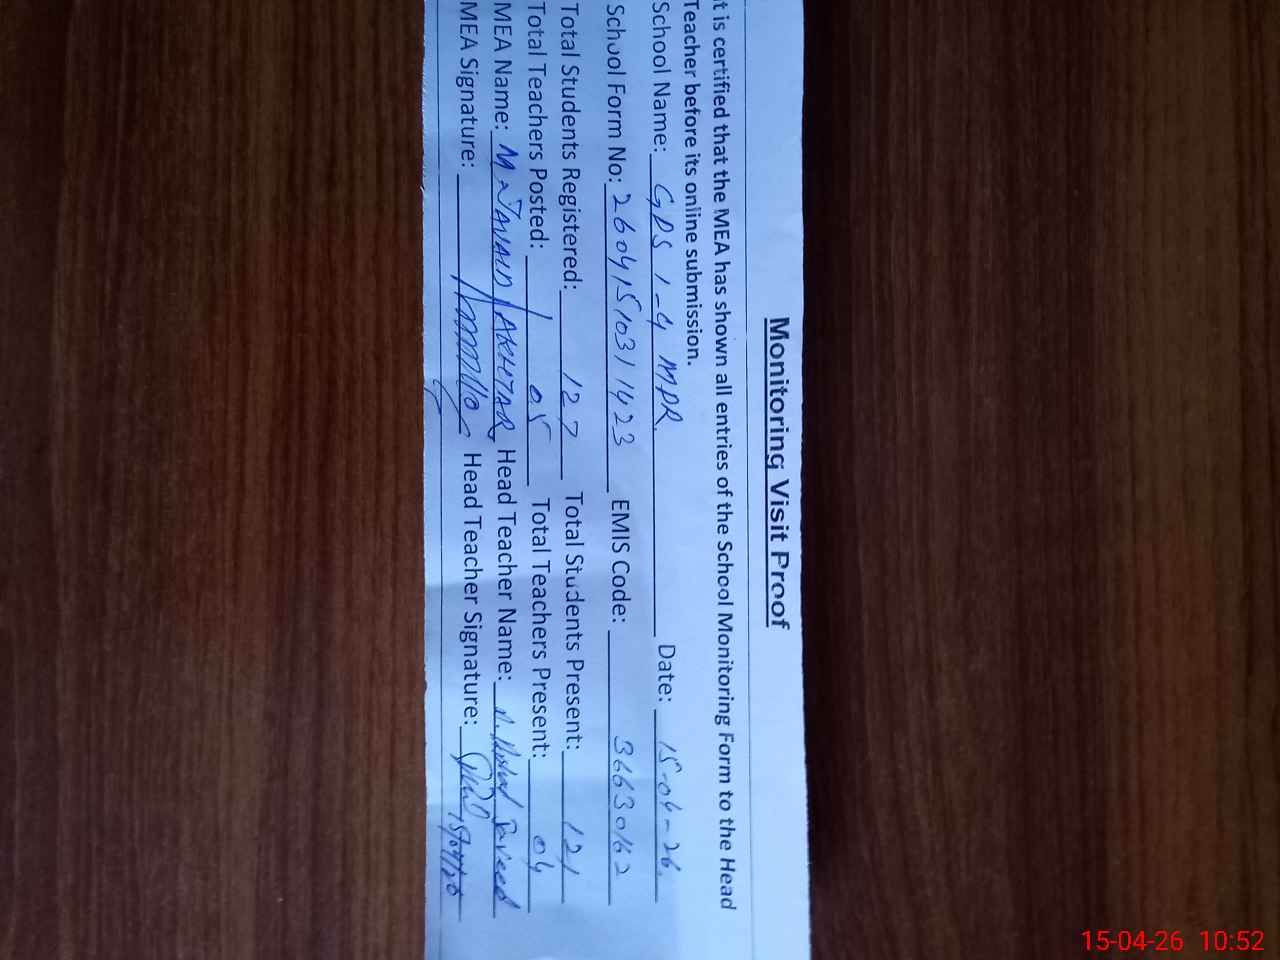 Monitoring Visit Proof
t is certified that the MEA has shown all entries of the School Monitoring Form to the Head
Teacher before its online submission.
School Name: GPS 1-4 MPR Date: 15-04-26
School Form No: 26041510311423 EMIS Code: 36630162
Total Students Registered: 127 Total Students Present: 121
Total Teachers Posted: 05 Total Teachers Present: 04
MEA Name: M JAVAID AKHTAR Head Teacher Name:
MEA Signature: Head Teacher Signature:
15-04-26 10:52